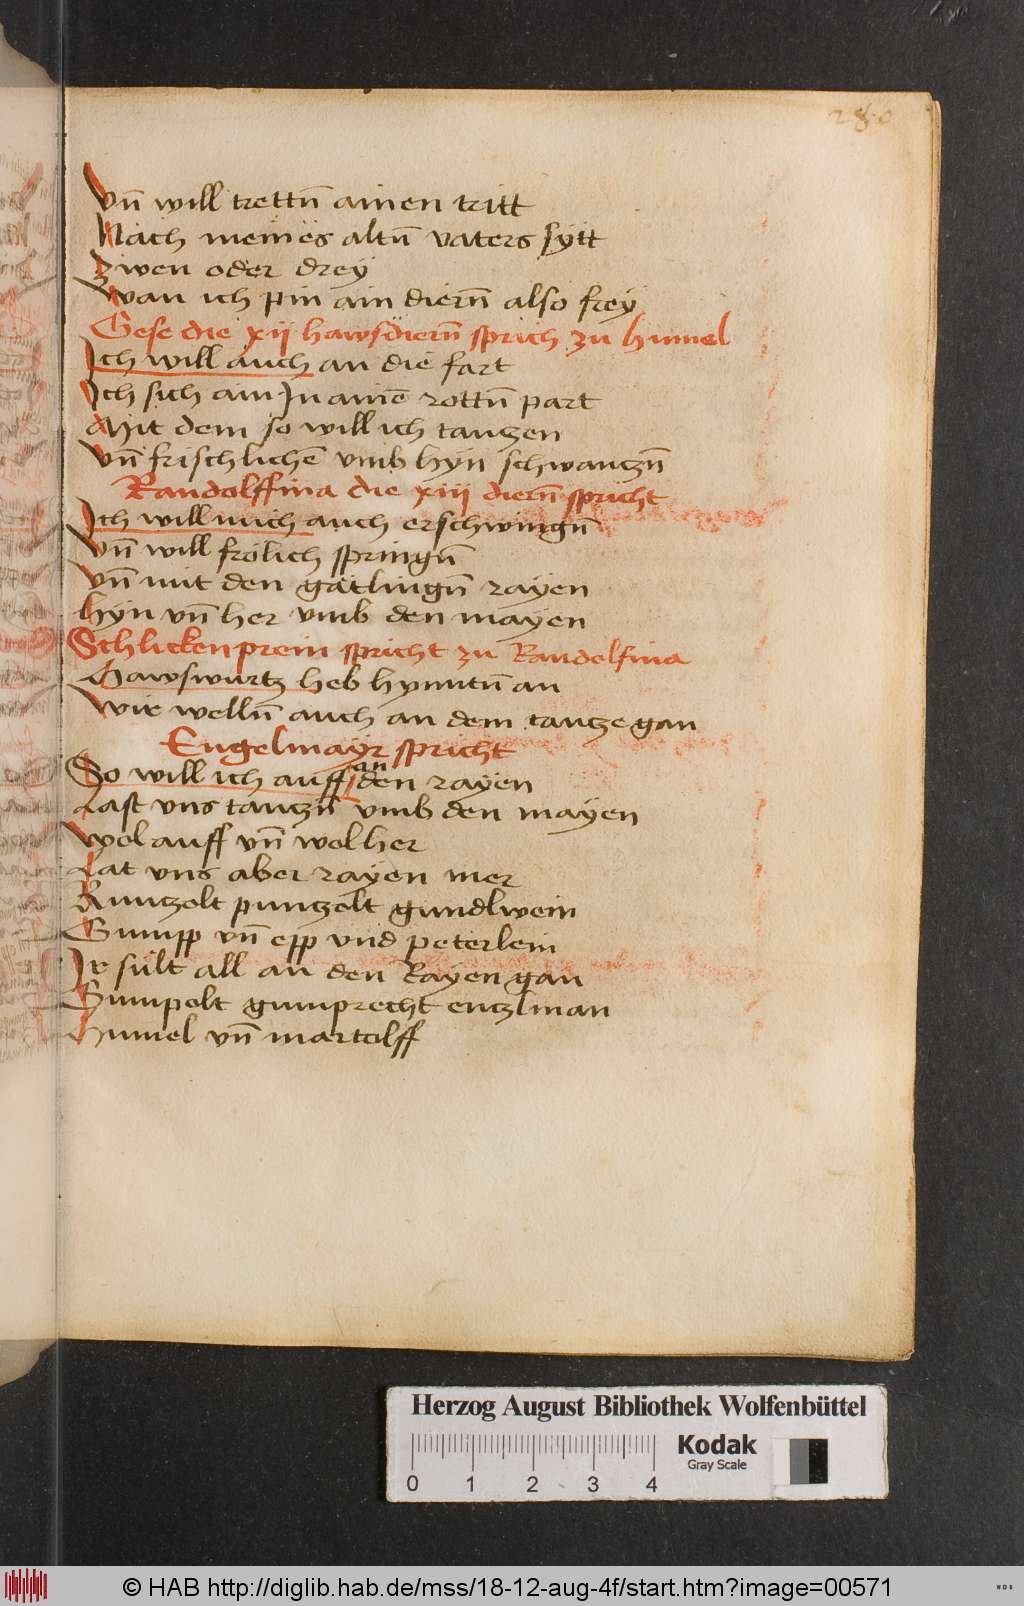 280
Vn̄ will trettn̄ ainen tritt
Nach meines altn̄ vaters sytt
Zwen oder drey
Wan ich pin ain diern̄ also frey
Gese die xij hawsdiern̄ sprich zu himel
Ich will auch an die fart
Ich sich ain In ainē rottn̄ part
Mit dem so will ich tantzen
Vn̄ frischlichē vmb hyn schwantzn̄
Randolffina die xiij diern̄ spricht
Ich will mich auch erschwingn̄
Vn̄ will frolich springn̄
Vn̄ mit den gätlingn̄ rayen
hyn vn̄ her vmb den mayen
Schlickenprein spricht zu Randelfina
Hawswurtz heb hynntn̄ an
Wir welln̄ auch an dem tantze gan
Engelmayr spricht
So will ich auff an den rayen
Last vns tantzn̄ vmb den mayen
Wol auff vn̄ wol her
Lat vns aber rayen mer
Runtzolt puntzolt gundlwein
Gumpp vn̄ epp vnd peterlein
Ir sült all an den Rayen gan
Gumpolt gumprecht entzlman
Humel vn̄ martolff
Herzog August Bibliothek Wolfenbüttel
Kodak
Gray Scale
0 1 2 3 4
© HAB http://diglib.hab.de/mss/18-12-aug-4f/start.htm?image=00571